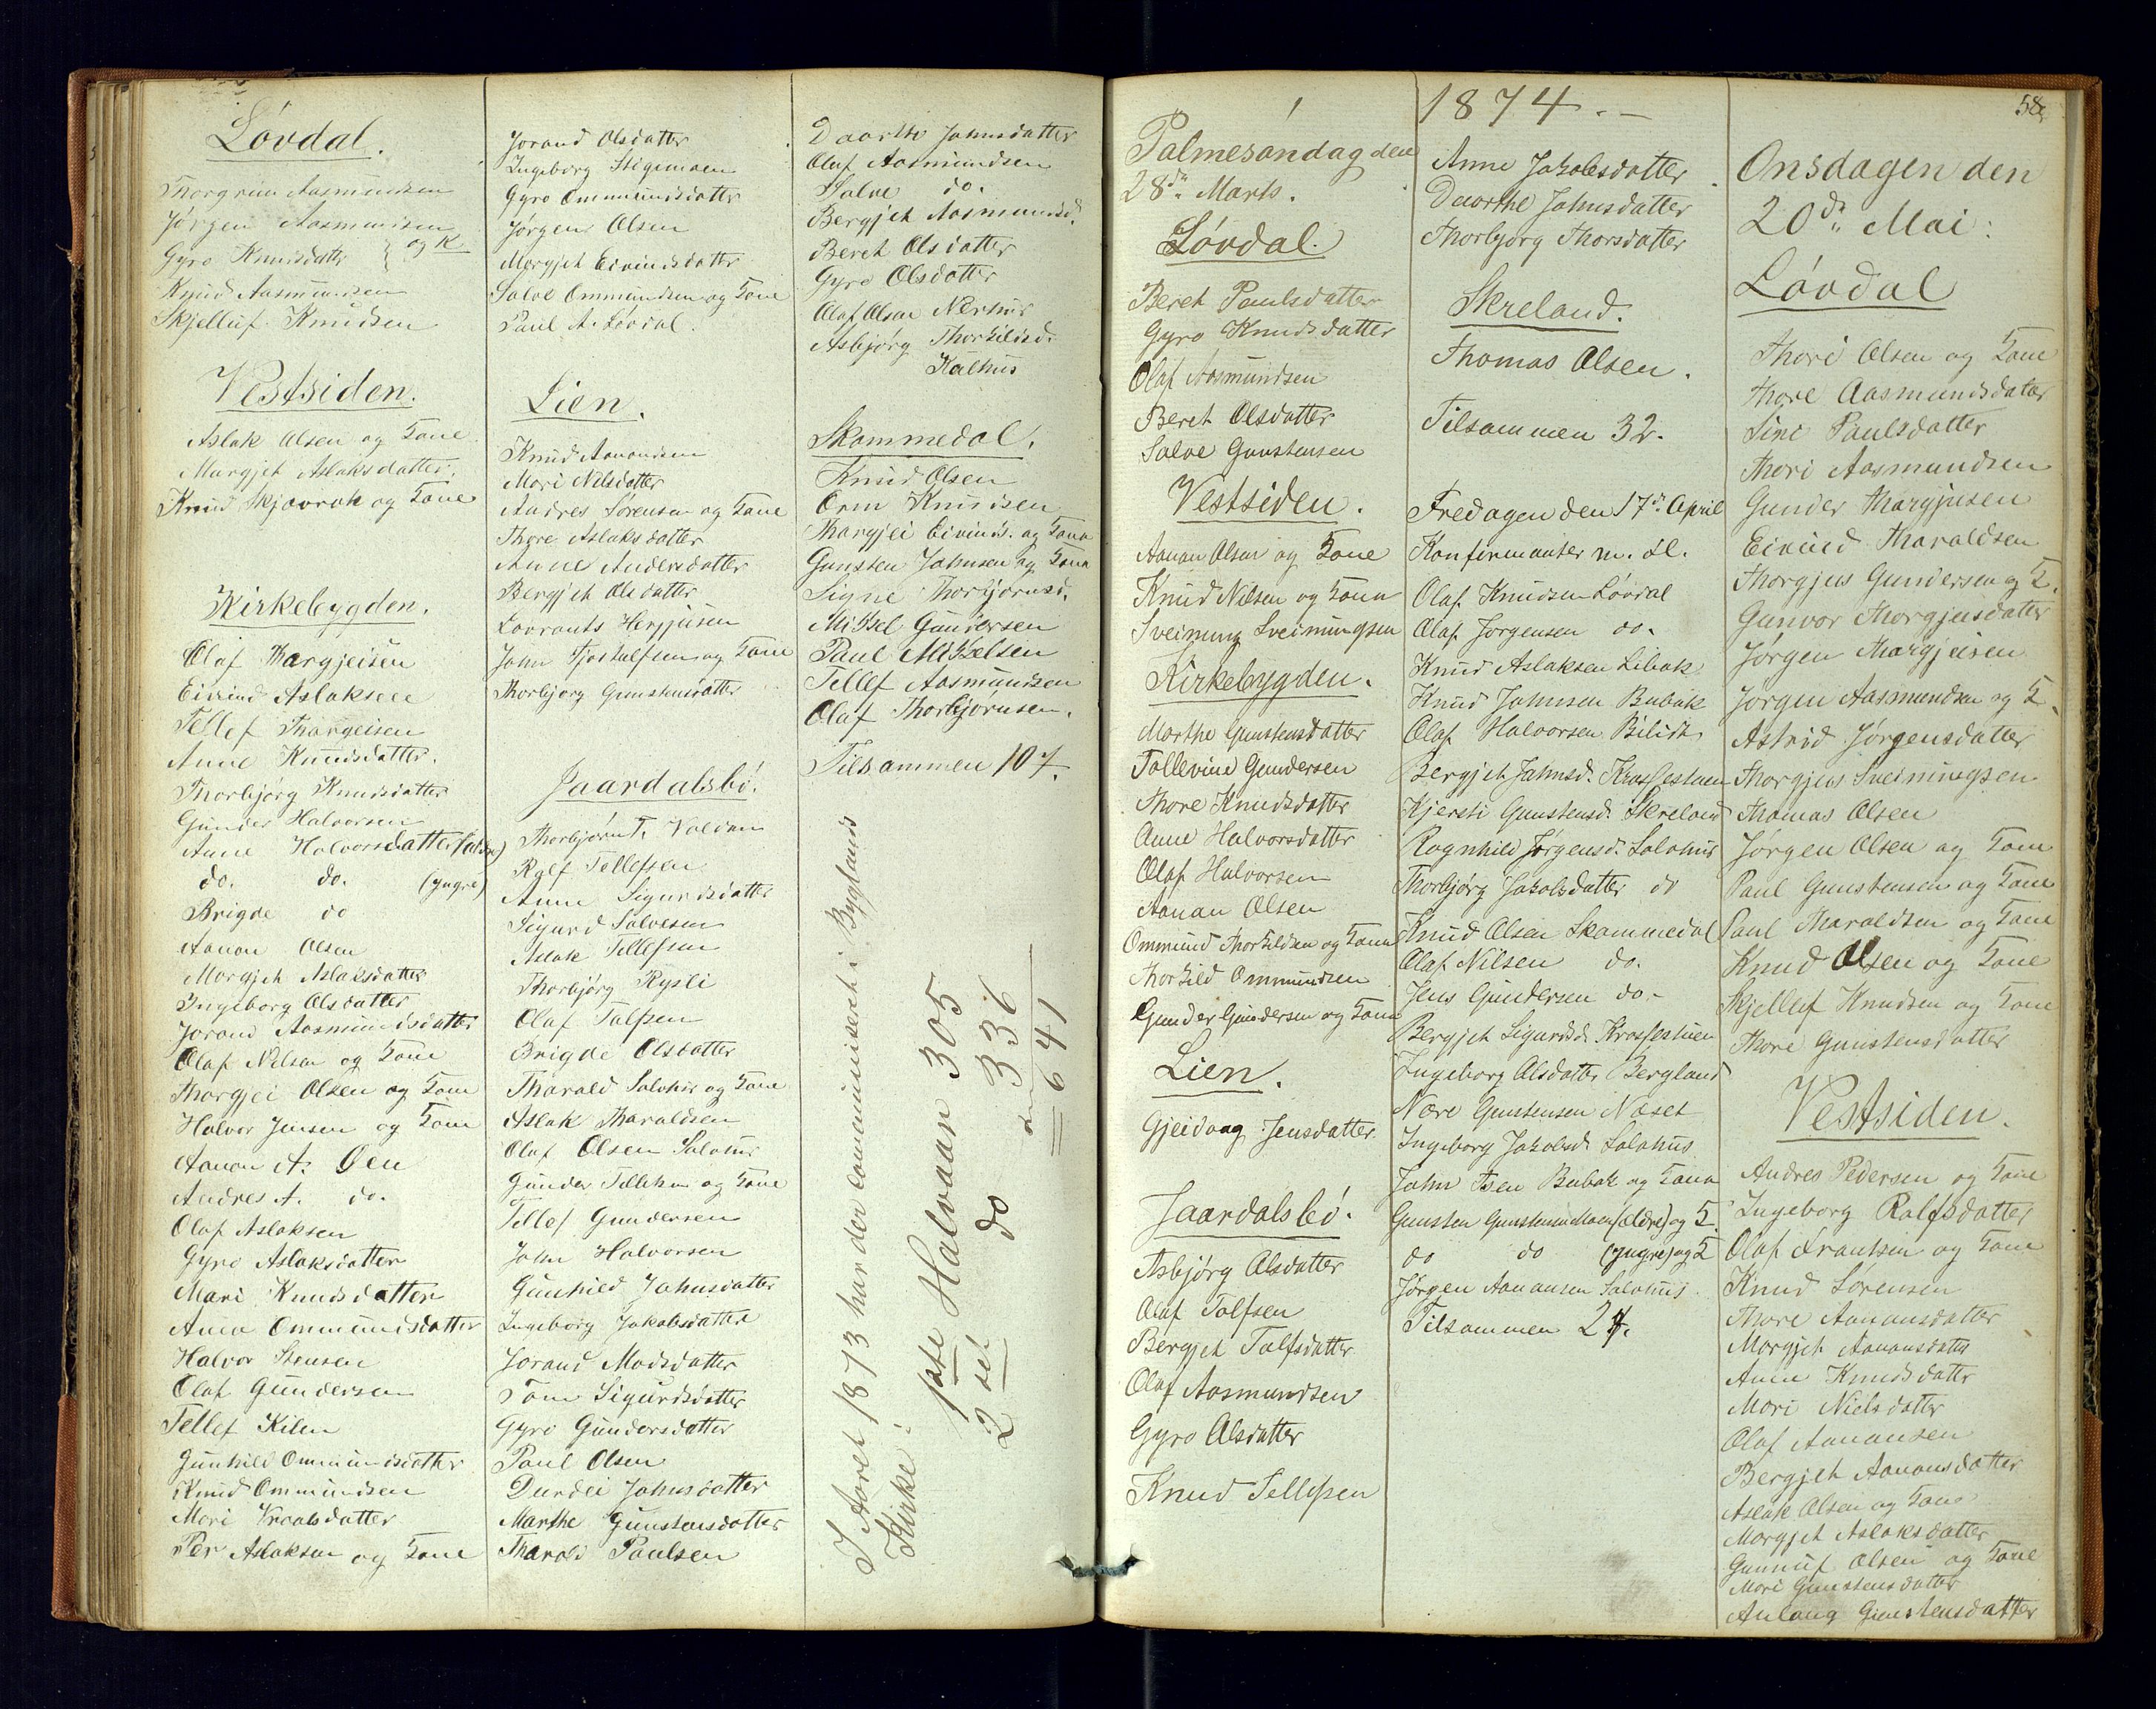 Løvdal.
Thorgrim Aasmundsen
Jørgen Aasmundsen
Gyro Knudsdatter } og K
Knud Aasmundsen
Skjelluf Knudsen
Vestsiden.
Aslak Olsen og Kone
Margjet Aslaksdatter.
Knud Skjævrak og Kone
Kirkebygden.
Olaf Thargjeisen
Eivind Aslaksen
Tellef Thargeisen
Anne Knudsdatter.
Thorbjørg Knudsdatter
Gunder Halvorsen
Anne Halvorsdatter (eldre)
do. do. (yngre)
Brigde do
Aanon Olsen
Margjet Aslaksdatter
Ingeborg Olsdatter
Jorand Aasmundsdatter
Olaf Nilsen og Kone
Thorgjei Olsen og Kone
Halvor Jensen og Kone
Aanon A. Øen
Andres A. do.
Olaf Aslaksen
Gyro Aslaksdatter
Mari Knudsdatter
Anne Ommundsdatter
Halvor Stensen
Olaf Gundersen
Tellef Kilen
Gunhild Ommundsdatter
Knud Ommundsen
Mari Vraalsdatter
Per Aslaksen og Kone
Jorand Olsdatter
Ingeborg Stigemoen
Gyro Ommundsdatter
Jørgen Olsen
Margjet Eivindsdatter
Salve Ommundsen og Kone
Paul A. Løvdal.
Lien.
Knud Aanonsen
Mari Nilsdatter
Andres Sørensen og Kone
Thore Aslaksdatter
Anne Andersdatter
Bergjet Olsdatter
Lavrants Herjusen
John Tjostulfsen og Kone
Thorbjørg Gunstensdatter
Jaardalsbø.
Thorbjørn T. Valdem
Rolf Tellefsen
Anne Sigurdsdatter
Sigurd Salvesen
Aslak Tellefsen
Thorbjørg Rysli
Olaf Talfsen
Brigde Olsdatter
Tharald Solohus og Kone
Aslak Tharaldsen
Olaf Olsen Solohus
Gunder Tellefsen og Kone
Tellef Gundersen
John Halvorsen
Gunhild Johnsdatter
Ingeborg Jakobsdatter
Jorand Madsdatter
Tone Sigurdsdatter
Gyro Gundersdatter
Paul Olsen
Durdei Johnsdatter
Marthe Gunstensdatter
Tharald Paulsen
Daarthe Johnsdatter
Olaf Aasmundsen
Salve do.
Bergjet Aasmundsd.
Beret Olsdatter
Gyro Olsdatter
Olaf Olsen Nerhus
Asbjørg Thorkildsd.
Kalhus
Skammedal.
Knud Olsen
Orm Knudsen
Thargjei Eivinds. og Kone
Gunsten Johnsen og Kone
Signe Thorbjørnsd.
Mikkel Gundersen
Paul Mikkelsen
Tellef Aasmundsen
Olaf Thorbjørnsen.
Tilsammen 107.
I Aaret 1873 har der communiceret i Byglands
Kirke:
1ste Halvaar 305
2det do 336
= 641
58.
1874.-
Palmesøndag den
28de Marts.
Løvdal.
Beret Paulsdatter
Gyro Knudsdatter
Olaf Aasmundsen
Beret Olsdatter
Salve Gunstensen
Vestsiden.
Aanon Olsen og Kone
Knud Nilsen og Kone
Sveinung Sveinungsen
Kirkebygden.
Marthe Gunstensdatter
Tallevine Gundersen
Thore Knudsdatter
Anne Halvorsdatter
Olaf Halvorsen
Aanon Olsen
Ommund Thorkildsen og Kone
Thorkild Ommundsen
Gunder Gundersen og Kone
Lien.
Gjeidaag Jensdatter.
Jaardalsbø.
Asbjørg Olsdatter
Olaf Talfsen
Bergjet Talfsdatter
Olaf Aasmundsen
Gyro Olsdatter
Knud Tellefsen
Anne Jakobsdatter
Daarthe Johnsdatter
Thorbjørg Thorsdatter
Skreland.
Thomas Olsen.
Tilsammen 32.
Fredagen den 17de April
Konfirmanter m. fl.
Olaf Knudsen Løvdal
Olaf Jørgensen do.
Knud Aslaksen Libak
Knud Johnsen Bubak
Olaf Halvorsen Bilidt
Bergjet Johnsd. Krossestuen
Kjersti Gunstensd. Skreland
Ragnhild Jørgensd. Solohus
Thorbjørg Jakobsdatter do
Knud Olsen Skammedal
Olaf Nilsen do.
Jens Gundersen do.-
Bergjet Sigurdsd. Krossestuen
Ingeborg Olsdatter Bergland
Nære Gunstensen Næset
Ingeborg Jakobsd. Solohus
John Bubak og Kone
Gunsten Gunstensen (ældre) og K.
do do (yngre) og K
Jørgen Aanonsen Solohus.
Tilsammen 24.
Onsdagen den
20de Mai.
Løvdal
Thori Olsen og Kone
Thore Aasmundsdatter
Sini Paulsdatter
Thori Aasmundsen
Gunder Thargjusen
Eivind Tharaldsen
Thorgjus Gundersen og K.
Gunvor Thorgjusdatter
Jørgen Thargjeisen
Jørgen Aasmundsen og K.
Astrid Jørgensdatter
Thorgjus Sveinungsen
Thomas Olsen
Jørgen Olsen og Kone
Paul Gunstensen og Kone
Paul Tharaldsen og Kone
Knud Olsen og Kone
Skjellef Knudsen og Kone
Thore Gunstensdatter
Vestsiden.
Andres Pedersen og Kone
Ingeborg Rolfsdatter
Olaf Frantsen og Kone
Knud Sørensen
Thore Aanonsdatter
Margjet Aanonsdatter
Anne Knudsdatter
Mari Nielsdatter
Olaf Aanonsen
Bergjet Aanonsdatter
Aslak Olsen og Kone
Margjet Aslaksdatter
Gunnuf Olsen og Kone
Mari Gunstensdatter
Anlaug Gunstensdatter